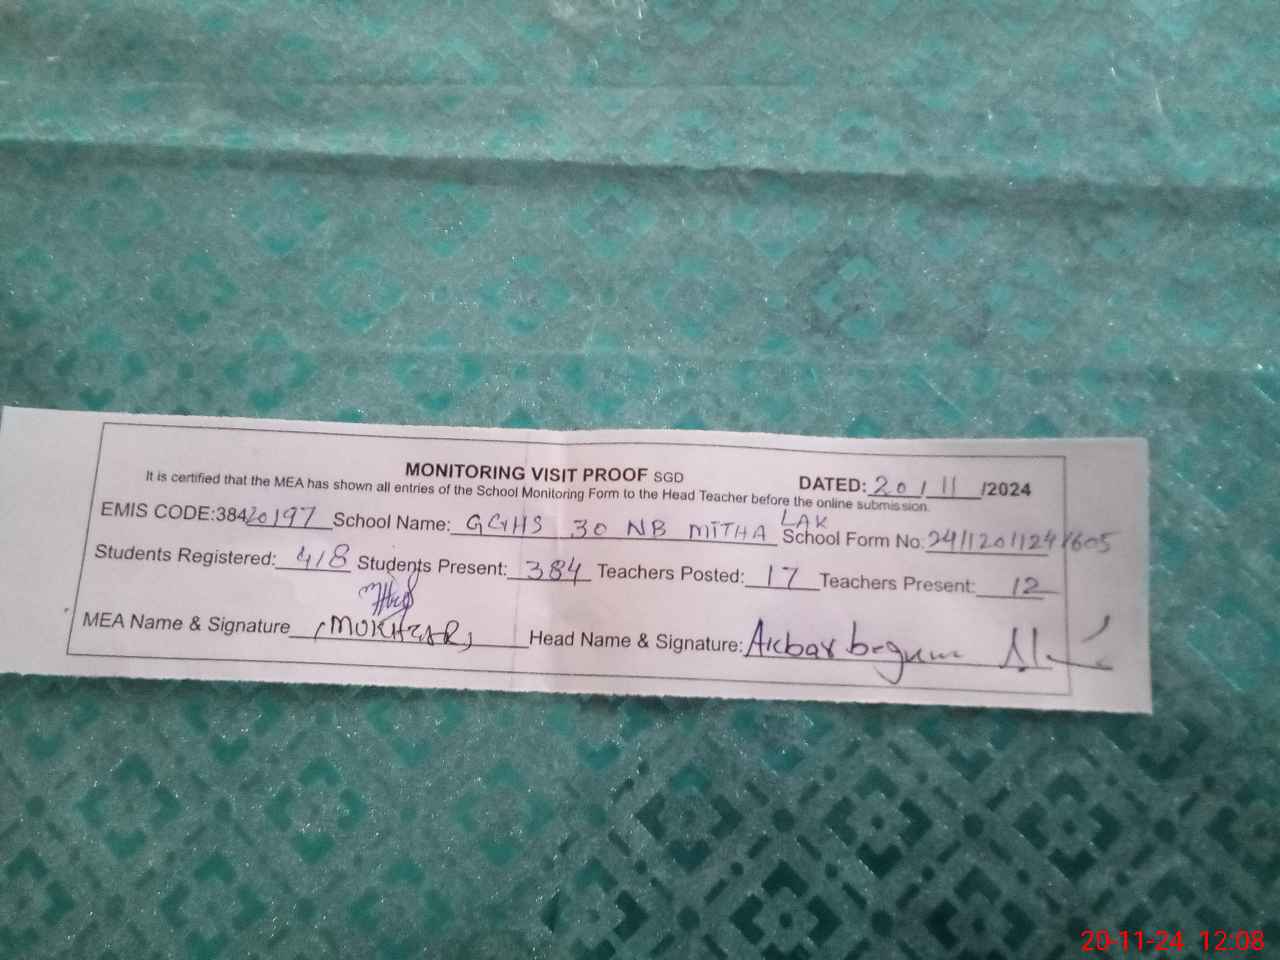 MONITORING VISIT PROOF SGD
DATED: 20/11/2024
It is certified that the MEA has shown all entries of the School Monitoring Form to the Head Teacher before the online submission.
EMIS CODE:38420197 School Name: GGHS 30 NB MITHA LAK School Form No:
Students Registered: 418 Students Present: 384 Teachers Posted: 17 Teachers Present: 12
MEA Name & Signature (MUKHTAR) Head Name & Signature: Akbar begum
20-11-24 12:08